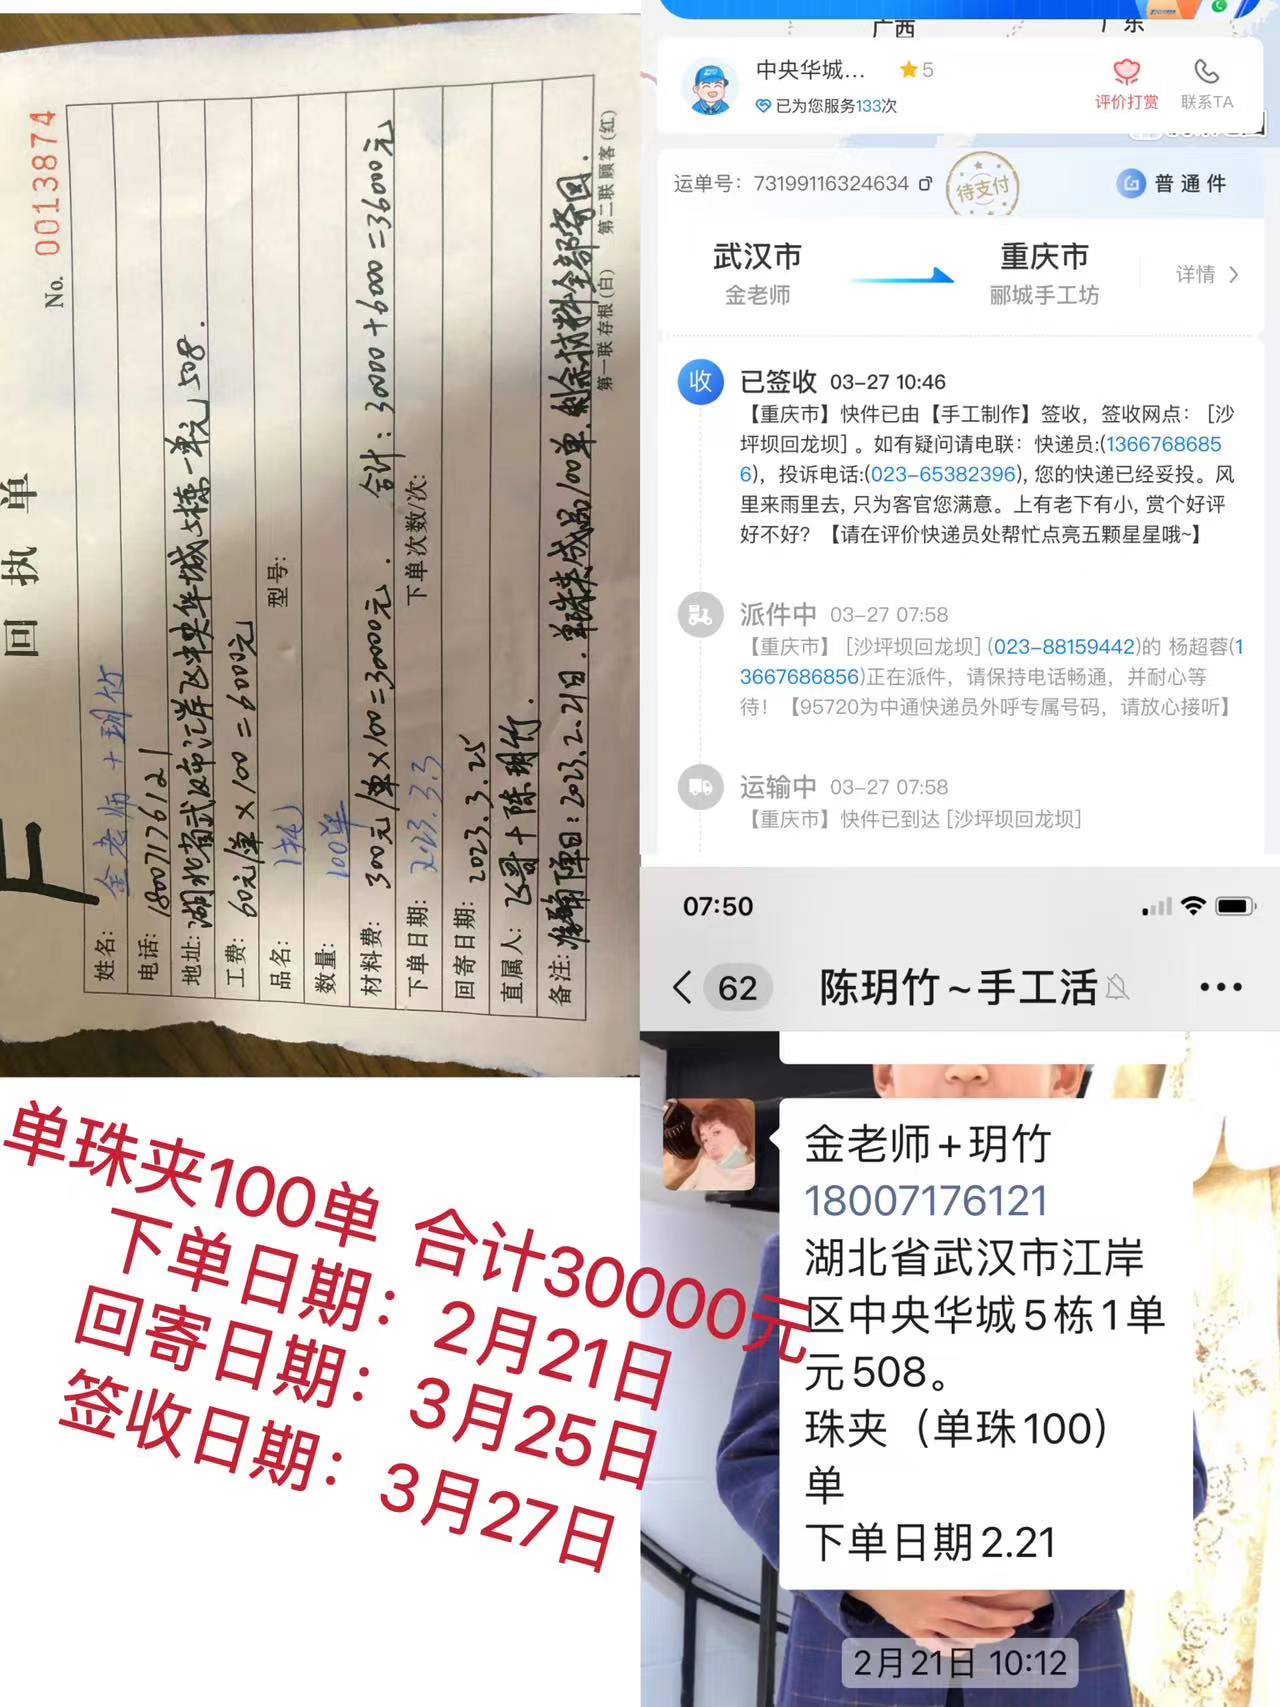 回执单
No. 0013874
姓名: 金老师+玥竹
电话: 18007176121
地址: 湖北省武汉市江岸区中央华城5栋一单元508.
工费: 60元/单×100=6000元
品名:
型号:
数量: 100单
材料费: 300元/单×100=30000元. 合计: 30000+6000=36000元
下单日期: 2023.3.3
下单次数/次:
回寄日期: 2023.3.25
直属人: 飞哥+陈玥竹.
备注: 下单日: 2023.2.21日. 单珠夹成品100单, 剩余材料全部寄回.
第一联 存根(白) 第二联 顾客(红)
广西
广东
中央华城...
5
已为您服务133次
评价打赏
联系TA
运单号：73199116324634
待支付
普通件
武汉市
金老师
重庆市
郦城手工坊
详情
收
已签收 03-27 10:46
【重庆市】快件已由【手工制作】签收，签收网点：[沙
坪坝回龙坝] 。如有疑问请电联：快递员:(1366768685
6)，投诉电话:(023-65382396), 您的快递已经妥投。风
里来雨里去, 只为客官您满意。上有老下有小, 赏个好评
好不好？【请在评价快递员处帮忙点亮五颗星星哦~】
派件中 03-27 07:58
【重庆市】 [沙坪坝回龙坝] (023-88159442)的 杨超蓉(1
3667686856)正在派件，请保持电话畅通，并耐心等
待！【95720为中通快递员外呼专属号码，请放心接听】
运输中 03-27 07:58
【重庆市】快件已到达 [沙坪坝回龙坝]
07:50
62
陈玥竹~手工活
金老师+玥竹
18007176121
湖北省武汉市江岸
区中央华城5栋1单
元508。
珠夹（单珠100）
单
下单日期2.21
2月21日 10:12
单珠夹100单 合计30000元
下单日期：2月21日
回寄日期：3月25日
签收日期：3月27日